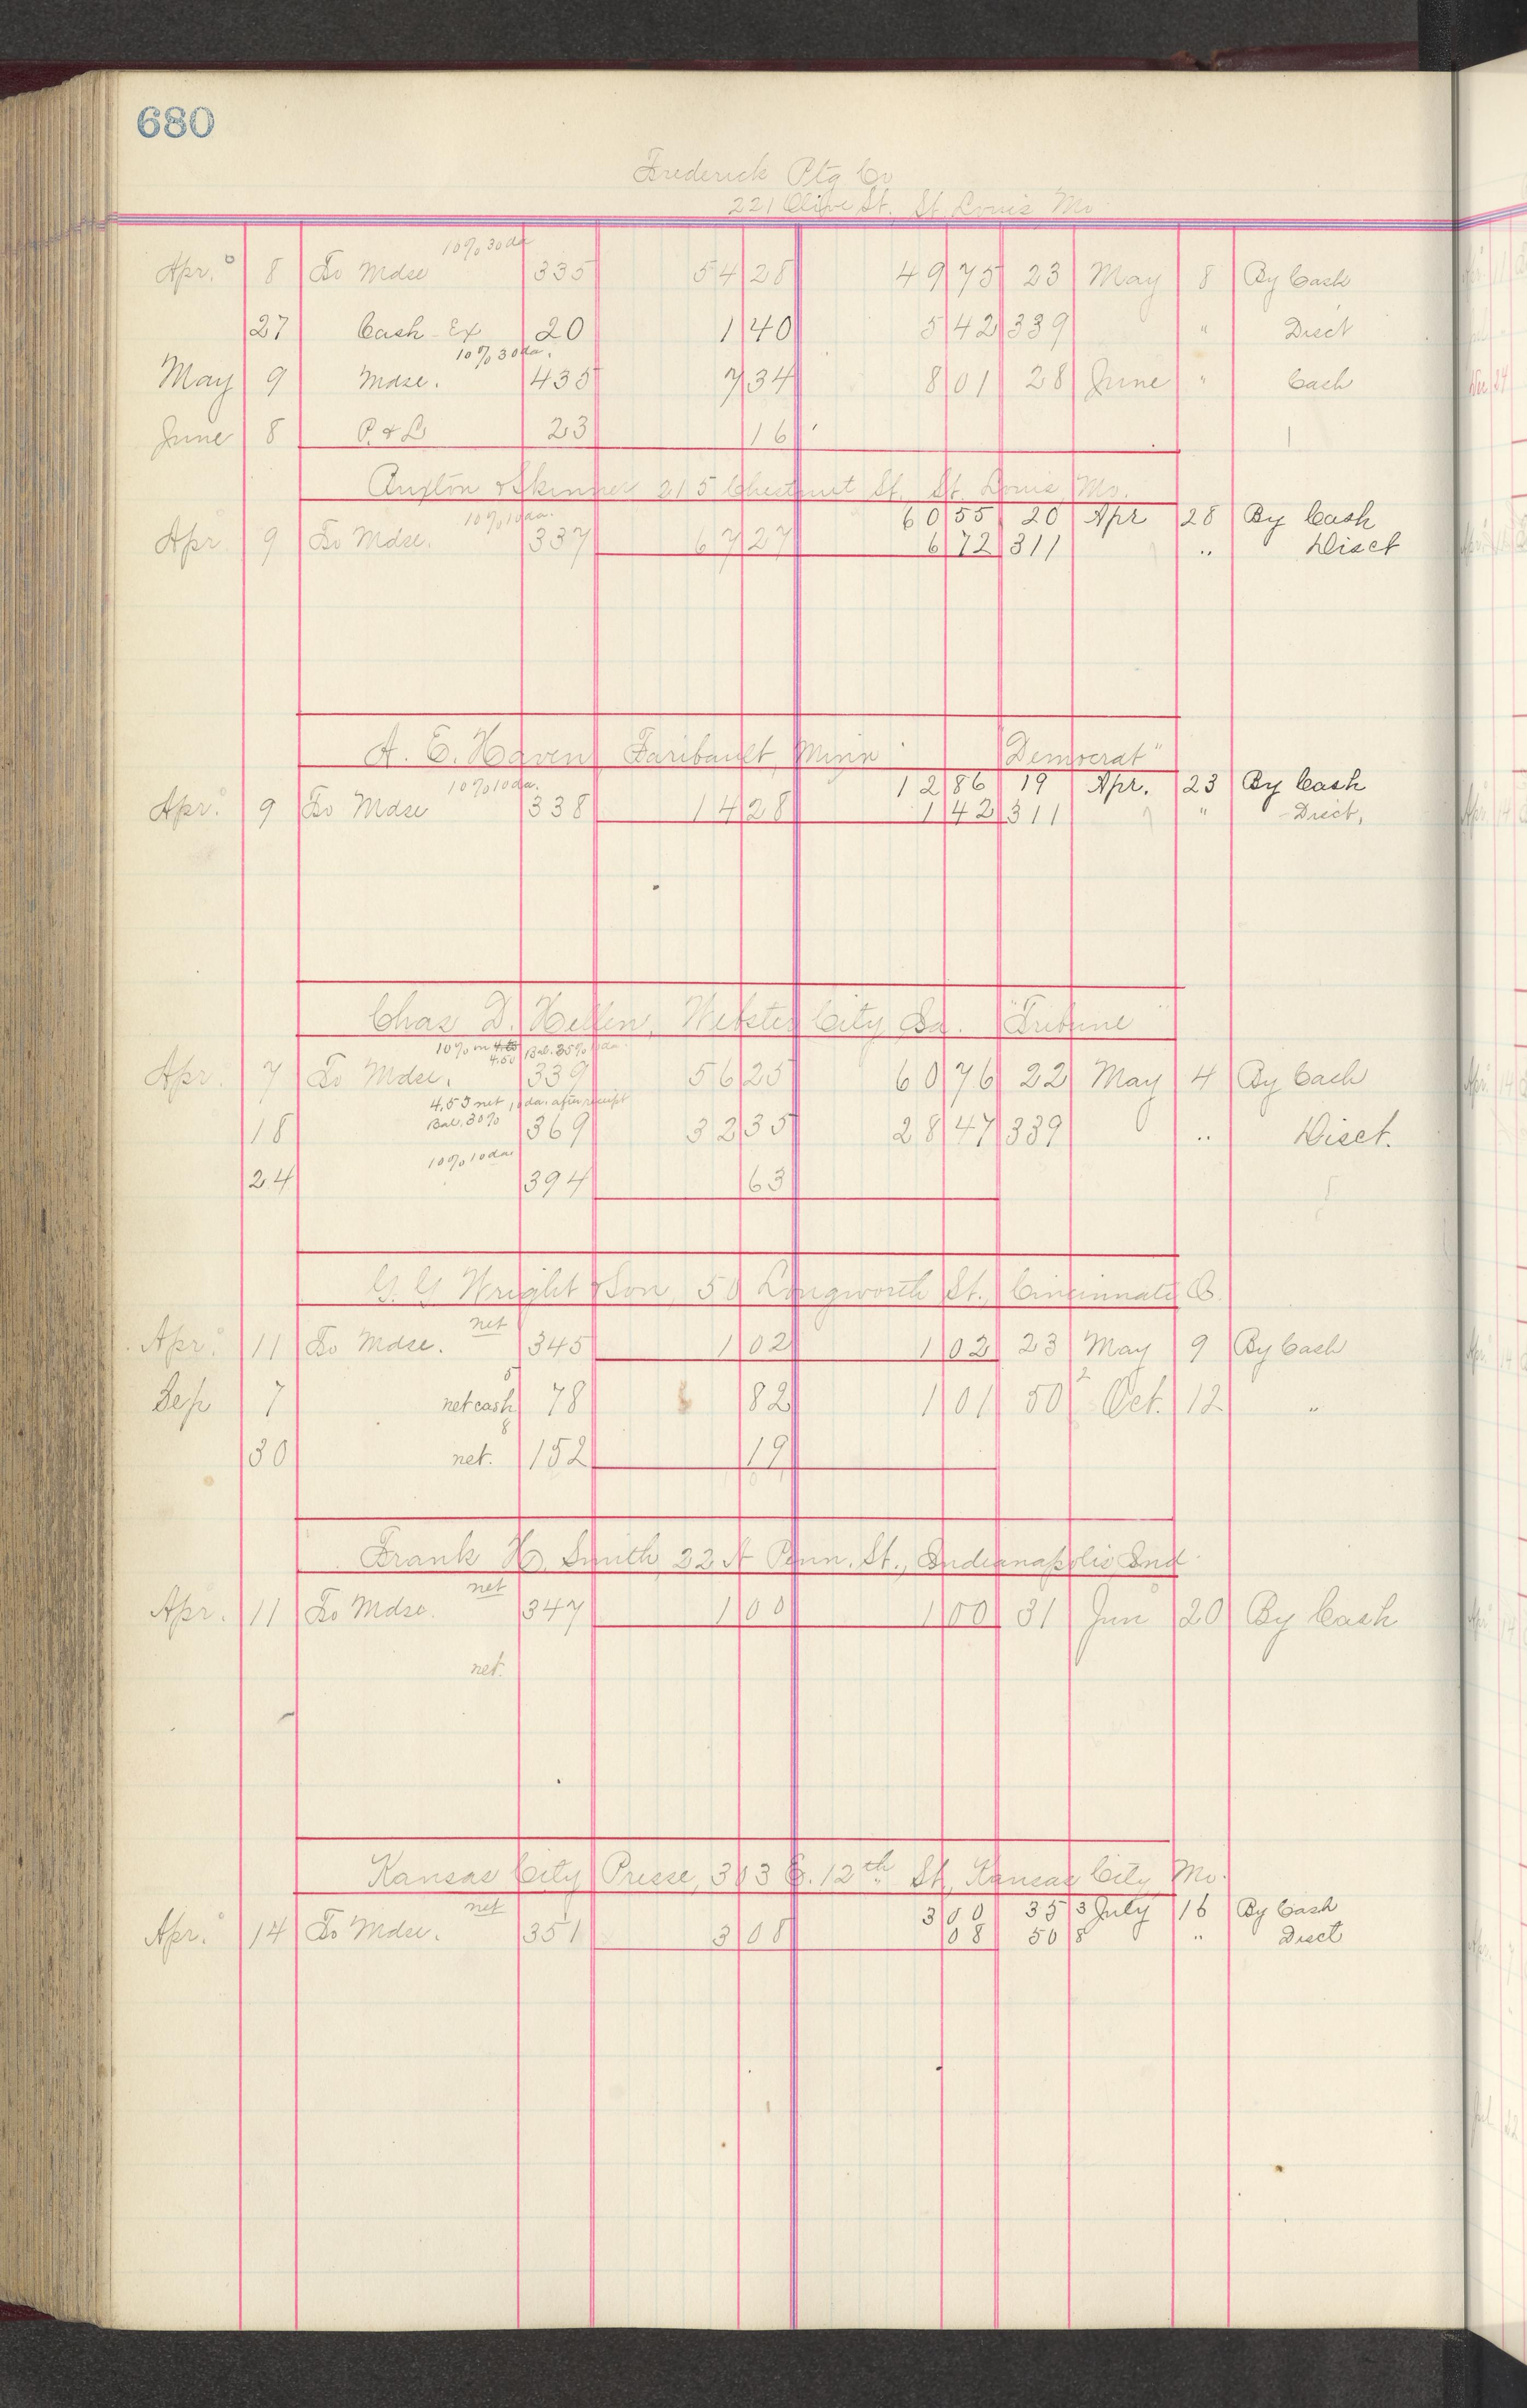 680
Frederick Ptg Co
221 Olive St. St. Louis Mo
10% 30 da
Apr. 8 To Mdse 335 54 28 49 75 23 May 8 By Cash
27 Cash Ex 20 1 40 5 42 339 " Disct
10% 30 da.
May 9 Mdse. 435 7 34 8 01 28 June " Cash
June 8 P. & L 23 16
Buxton & Skinner 215 Chestnut St. St. Louis, Mo.
10% 10 da. 60 55 20 Apr 28 By Cash
Apr 9 To Mdse. 337 67 27 6 72 311 " Disct
A. E. Haven Faribault, Minn "Democrat"
10% 10 da. 12 86 19 Apr. 23 By Cash
Apr. 9 To Mdse 338 14 28 1 42 311 " Disct,
Chas D. Hellen, Webster City Ia. "Tribune"
10% on 4.50 Bal. 35% 10 da.
Apr. 7 To Mdse. 339 56 25 60 76 22 May 4 By Cash
4.53 net, 10 da. after receipt
Bal. 30%
18 369 32 35 28 47 339 " Disct.
10% 10 da
24 394 63
G. G Wright & Son, 50 Longworth St., Cincinnati O.
net
Apr. 11 To Mdse. 345 1 02 1 02 23 May 9 By Cash
Sep 7 net cash 5 78 82 1 01 50 2 Oct. 12 "
30 net. 8 152 19
Frank H. Smith, 22 N Penn. St., Indianapolis Ind
net
Apr. 11 To Mdse. 347 1 00 1 00 31 Jun 20 By Cash
net.
Kansas City Presse, 303 E. 12th St, Kansas City Mo.
net 3 00 35 3 July 16 By Cash
Apr. 14 To Mdse. 351 3 08 08 50 8 " Disct